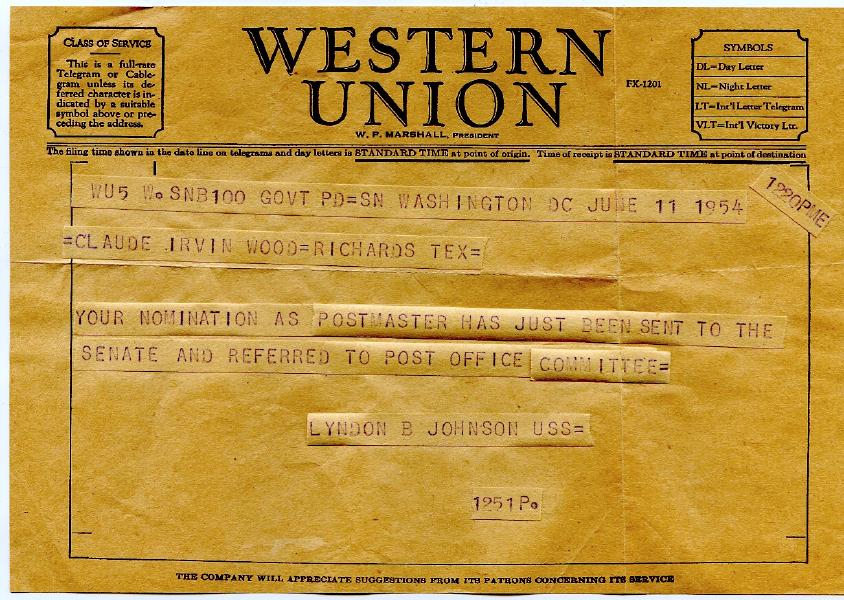 CLASS OF SERVICE
This is a full-rate
Telegram or Cable-
gram unless its de-
ferred character is in-
dicated by a suitable
symbol above or pre-
ceding the address.
WESTERN
UNION
W. P. MARSHALL, PRESIDENT
FX-1201
SYMBOLS
DL=Day Letter
NL=Night Letter
LT=Int'l Letter Telegram
VLT=Int'l Victory Ltr.
The filing time shown in the date line on telegrams and day letters is STANDARD TIME at point of origin. Time of receipt is STANDARD TIME at point of destination
WU5 W. SNB100 GOVT PD=SN WASHINGTON DC JUNE 11 1954
1220PME
=CLAUDE IRVIN WOOD=RICHARDS TEX=
YOUR NOMINATION AS POSTMASTER HAS JUST BEEN SENT TO THE
SENATE AND REFERRED TO POST OFFICE COMMITTEE=
LYNDON B JOHNSON USS=
1251P.
THE COMPANY WILL APPRECIATE SUGGESTIONS FROM ITS PATRONS CONCERNING ITS SERVICE